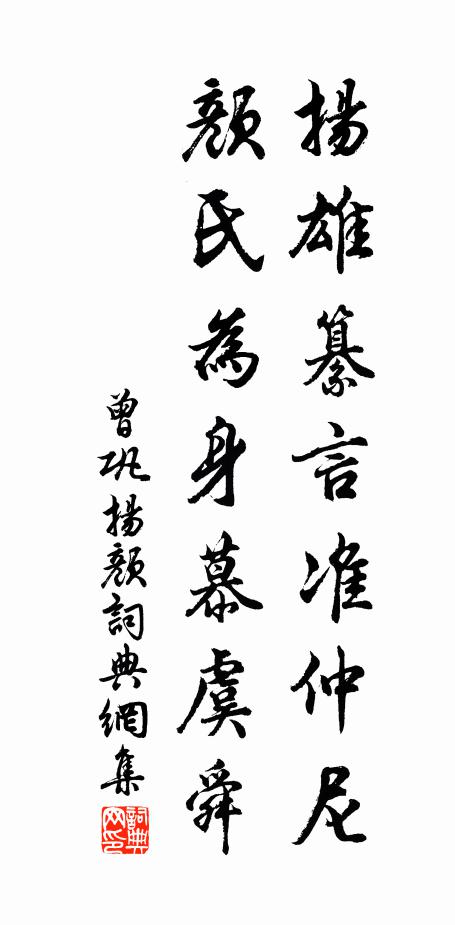 揚雄纂言准仲尼
顏氏為身慕虞舜
曾巩揚顏詞典網集
詞典
网印